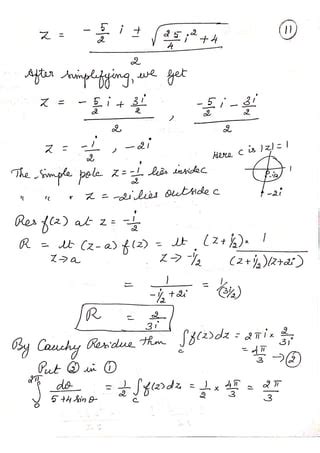 11
z = (-5/2 i ± √(25/4 i² + 4)) / 2
After simplifying, we get
z = (-5/2 i + 3i/2) / 2 , (-5/2 i - 3i/2) / 2
z = -i/2 , -2i
Here c is |z| = 1
The simple pole z = -i/2 lies inside c
-i/2
" " " z = -2i lies outside c
-2i
Res f(z) at z = -i/2
R = lt z→a (z-a) f(z) = lt z→-i/2 (z+i/2) × 1 / ((z+i/2)(z+2i))
= 1 / (-i/2 + 2i) = 1/(3i/2)
R = 2/3i
By Cauchy Residue thm ∫c f(z) dz = 2πi × 2/3i
= 4π/3 → ②
Put ② in ①
∫0^2π dθ / (5+4 sin θ) = 1/2 ∫c f(z) dz = 1/2 × 4π/3 = 2π/3